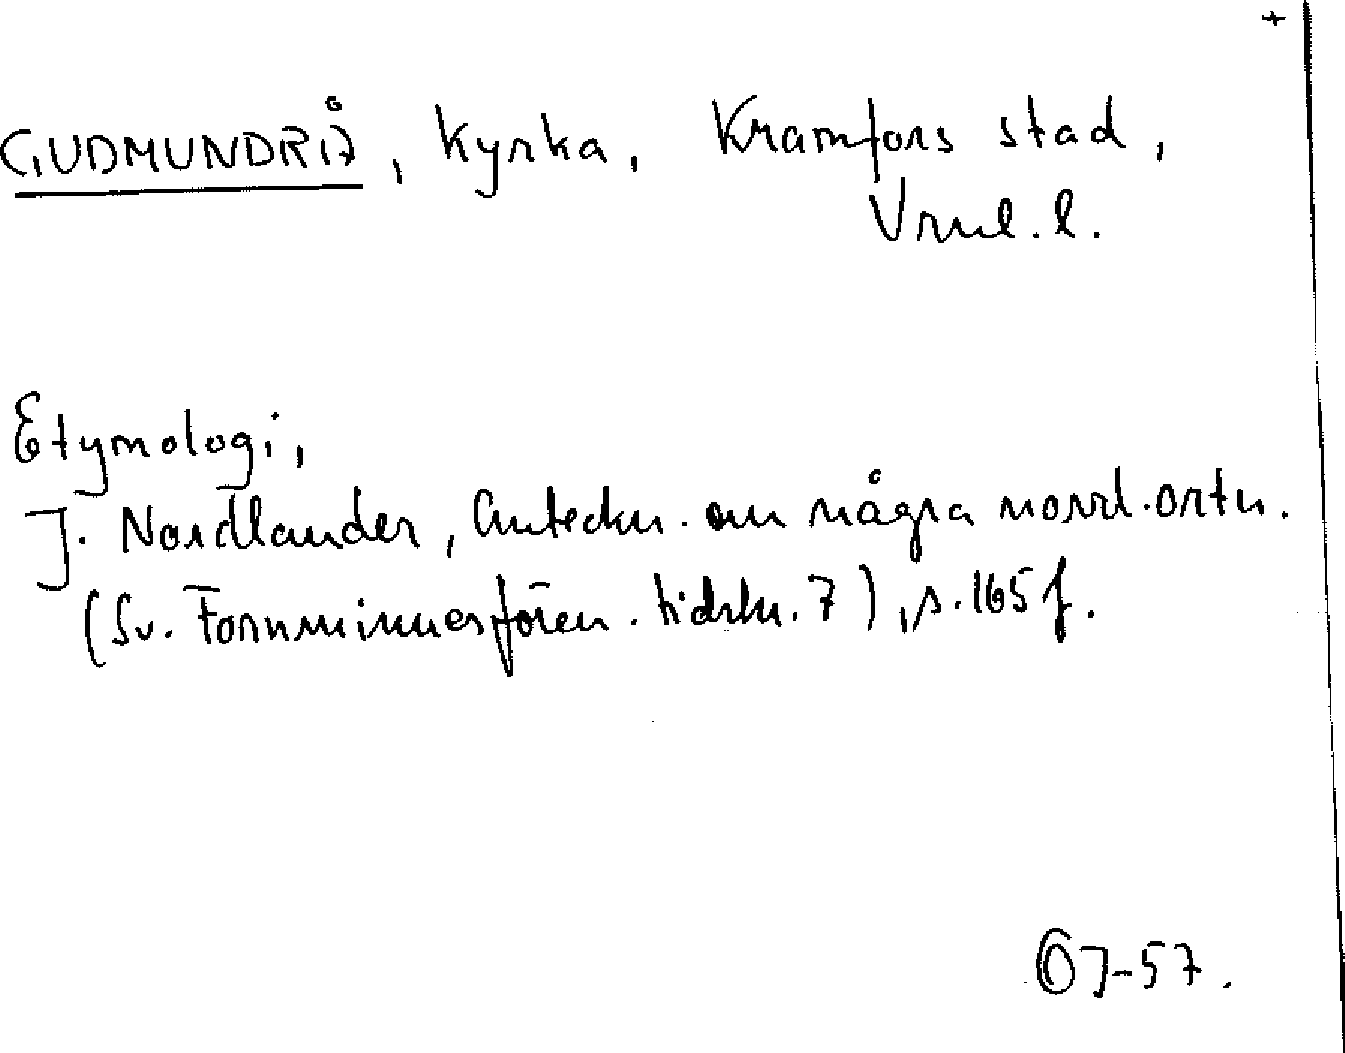 +
GUDMUNDRÅ, kyrka, Kramfors stad,
Vrnl. l.
Etymologi,
J. Nordlander, Anteckn. om några norrl. ortn.
(Sv. Fornminnesfören. tidskr. 7), s. 165 f.
OJ-57.